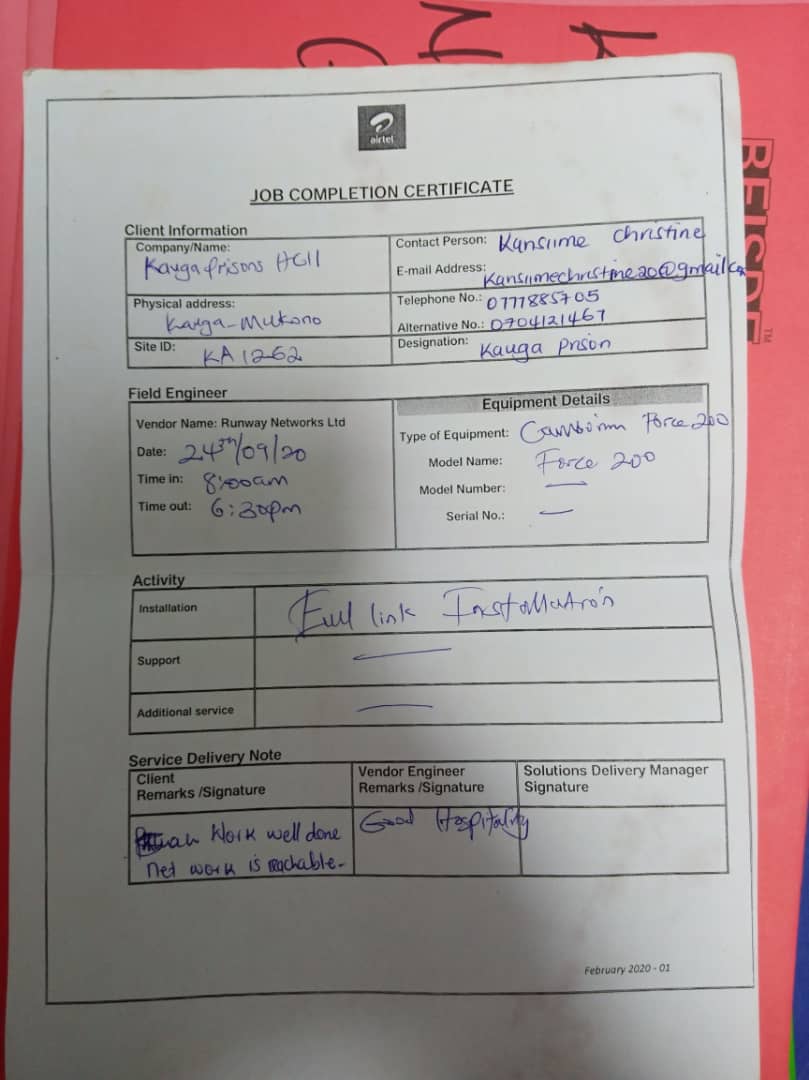 airtel
JOB COMPLETION CERTIFICATE
Client Information
Company/Name:
Kauga prisons HCII
Contact Person: Kansiime Christine
E-mail Address: Kansiimechristine20@gmail.com
Physical address:
Kauga-Mukono
Telephone No.: 0777885705
Alternative No.: 0704121467
Site ID: KA1262
Designation: Kauga prison
Field Engineer
Vendor Name: Runway Networks Ltd
Date: 24th/09/20
Time in: 8:00am
Time out: 6:30pm
Equipment Details
Type of Equipment: Force 200
Model Name: Force 200
Model Number: —
Serial No.: —
Activity
Installation Full link Installation
Support —
Additional service —
Service Delivery Note
Client
Remarks /Signature
Vendor Engineer
Remarks /Signature
Solutions Delivery Manager
Signature
Work well done
Net work is reachable-
Good Hospitality
February 2020 - 01
REISDE
TM